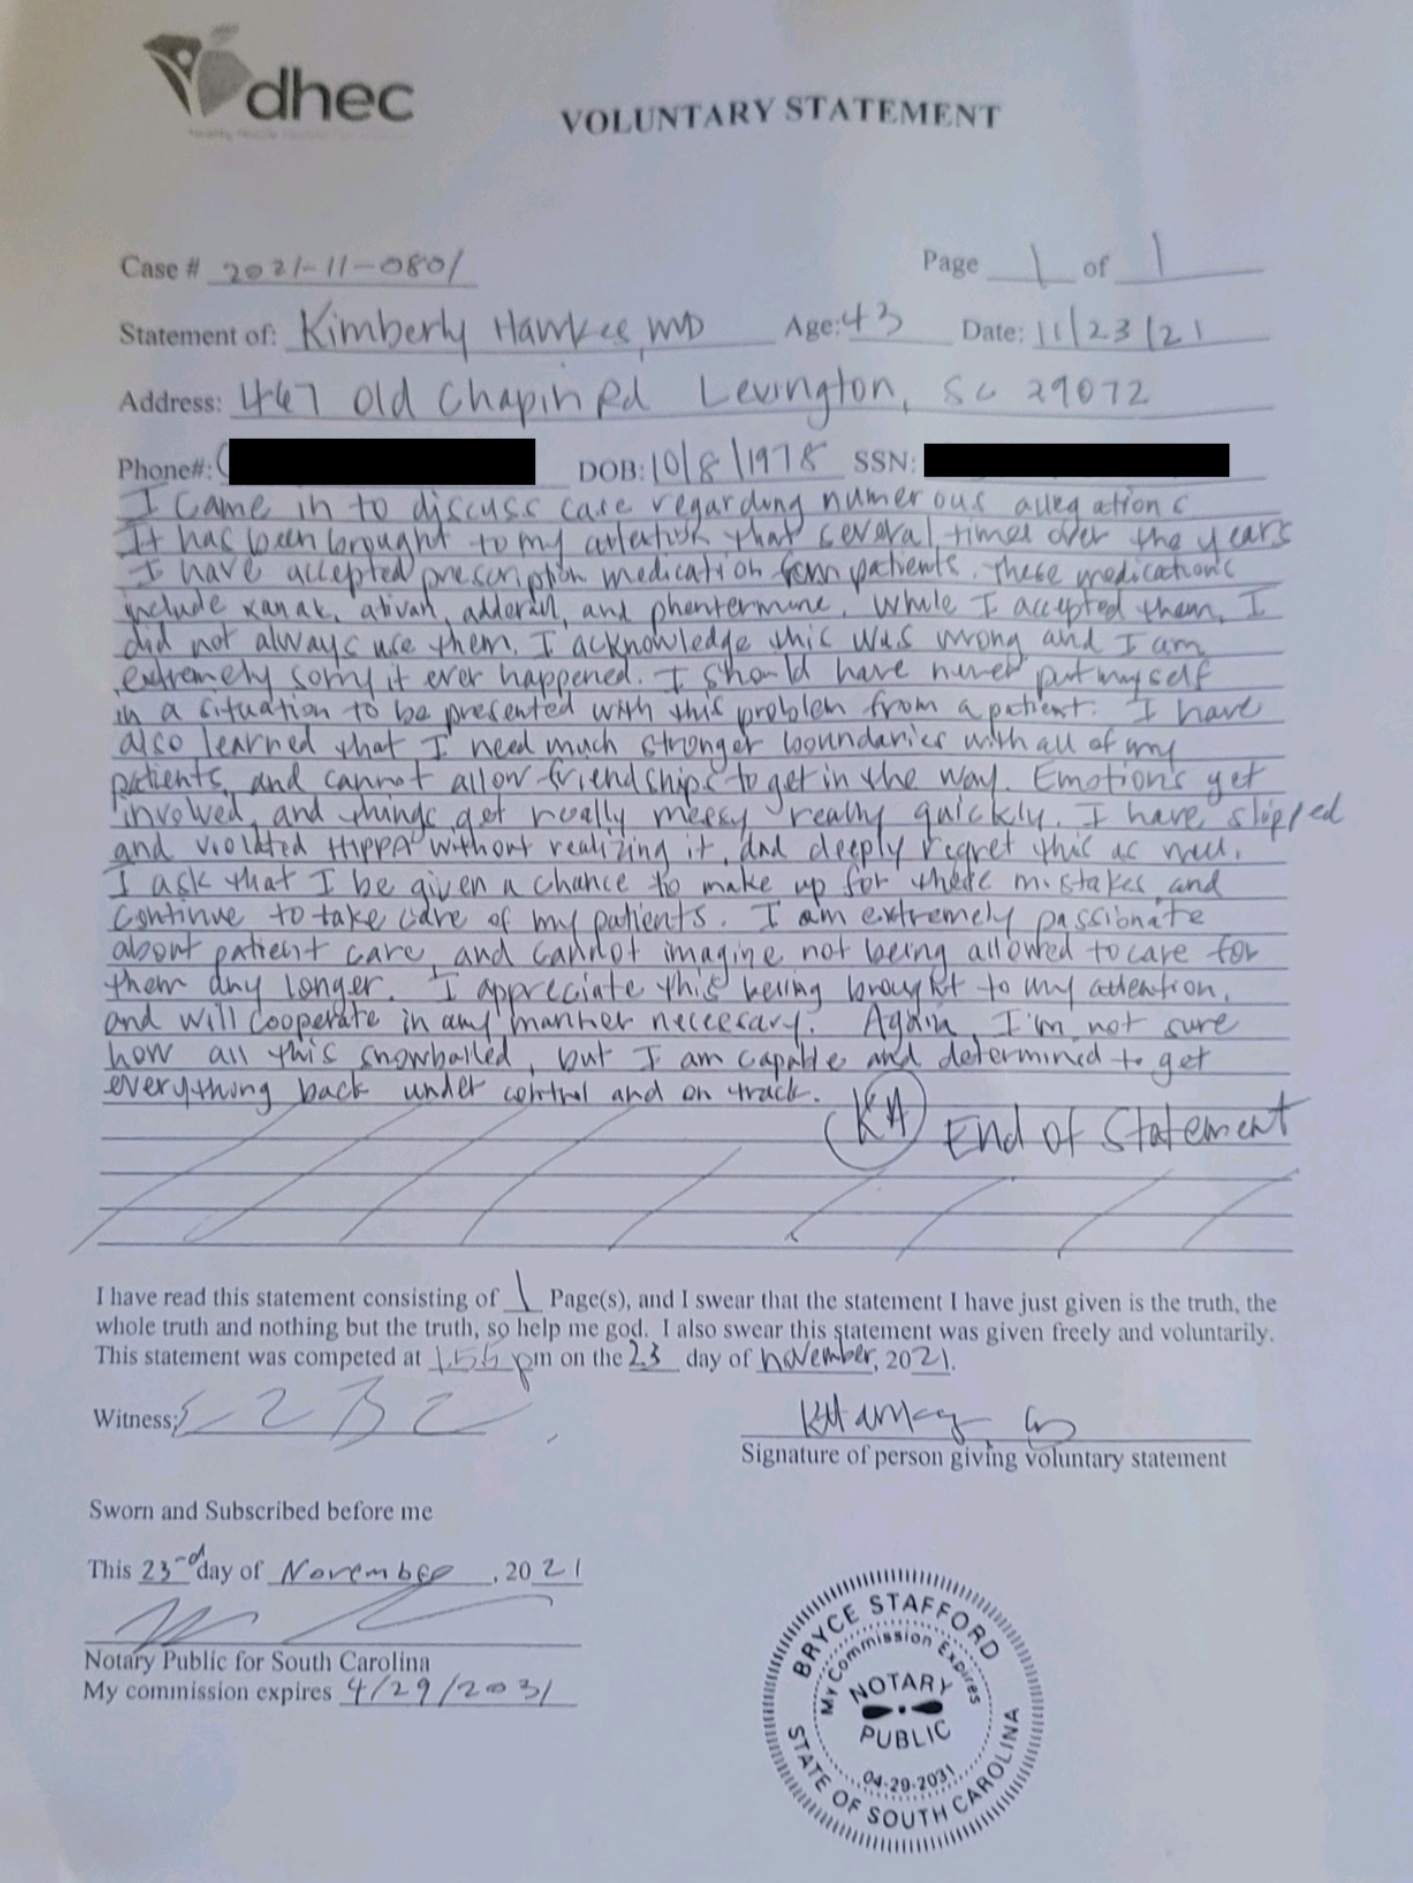 dhec
VOLUNTARY STATEMENT
Case # 2021-11-0801 Page 1 of 1
Statement of: Kimberly Hawkes, MD Age: 43 Date: 11/23/21
Address: 467 Old Chapin Rd Lexington, SC 29072
Phone#: ( DOB: 10/8/1978 SSN:
I came in to discuss case regarding numerous allegations
It has been brought to my attention that several times over the years
I have accepted prescription medication from patients. These medications
include xanax, ativan, adderall, and phentermine. While I accepted them, I
did not always use them. I acknowledge this was wrong and I am
extremely sorry it ever happened. I should have never put myself
in a situation to be presented with this problem from a patient. I have
also learned that I need much stronger boundaries with all of my
patients, and cannot allow friendships to get in the way. Emotions get
involved, and things get really messy really quickly. I have slipped
and violated HIPPA without realizing it, and deeply regret this as well.
I ask that I be given a chance to make up for these mistakes and
continue to take care of my patients. I am extremely passionate
about patient care, and cannot imagine not being allowed to care for
them any longer. I appreciate this being brought to my attention,
and will cooperate in any manner necessary. Again, I'm not sure
how all this snowballed, but I am capable and determined to get
everything back under control and on track.
KH End of Statement
I have read this statement consisting of 1 Page(s), and I swear that the statement I have just given is the truth, the
whole truth and nothing but the truth, so help me god. I also swear this statement was given freely and voluntarily.
This statement was competed at pm on the 23 day of November, 2021.
Witness:
Signature of person giving voluntary statement
Sworn and Subscribed before me
This 23rd day of November, 2021
Notary Public for South Carolina
My commission expires 4/29/2031
BRYCE STAFFORD
My Commission Expires
NOTARY
PUBLIC
04-29-2031
STATE OF SOUTH CAROLINA